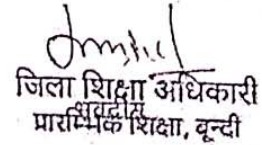 जिला शिक्षा अधिकारी
भवदीय
प्रारम्भिक शिक्षा, बून्दी